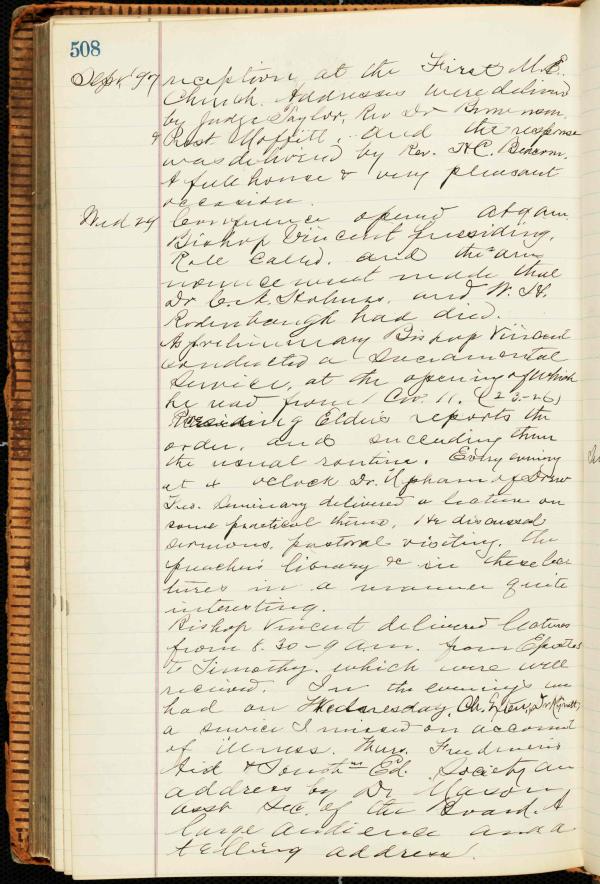 508
Sept '97 reception at the First M.E.
Church. Addresses were delivered
by Judge Taylor, Rev Dr
& Prest. Moffitt, and the response
was delivered by Rev. H.C.
A full house & very pleasant
occasion.
Wed 29 Conference opened at 9 am
Bishop Vincent presiding.
Role called. and the an
nouncement made that
Dr C.A. Holmes, and W. H.
Rodenbaugh had died.
As preliminary Bishop Vincent
conducted a Sacramental
Service, at the opening of which
he read from 1 Cor. 11. (23-26)
Presiding Elders reports the
order, and succeeding them
the usual routine. Every evening
at 4 o'clock Dr. Upham of Drew
Theo. Seminary delivered a lecture on
some practical theme, He discussed
sermons, pastoral visiting, the
preachers library &c in these lec
tures in a manner quite
interesting.
Bishop Vincent delivered lectures
from 8.30-9 am. from Epistles
to Timothy. which were well
received. In the evenings we
had on Wednesday, Ch. Exten, Dr Kynett,
a service I missed on account
of illness. Thurs. Freedmen's
Aid & South'n Ed. Society an
address by Dr Mason
asst Sec. of the Board. A
large audience and a
telling address.